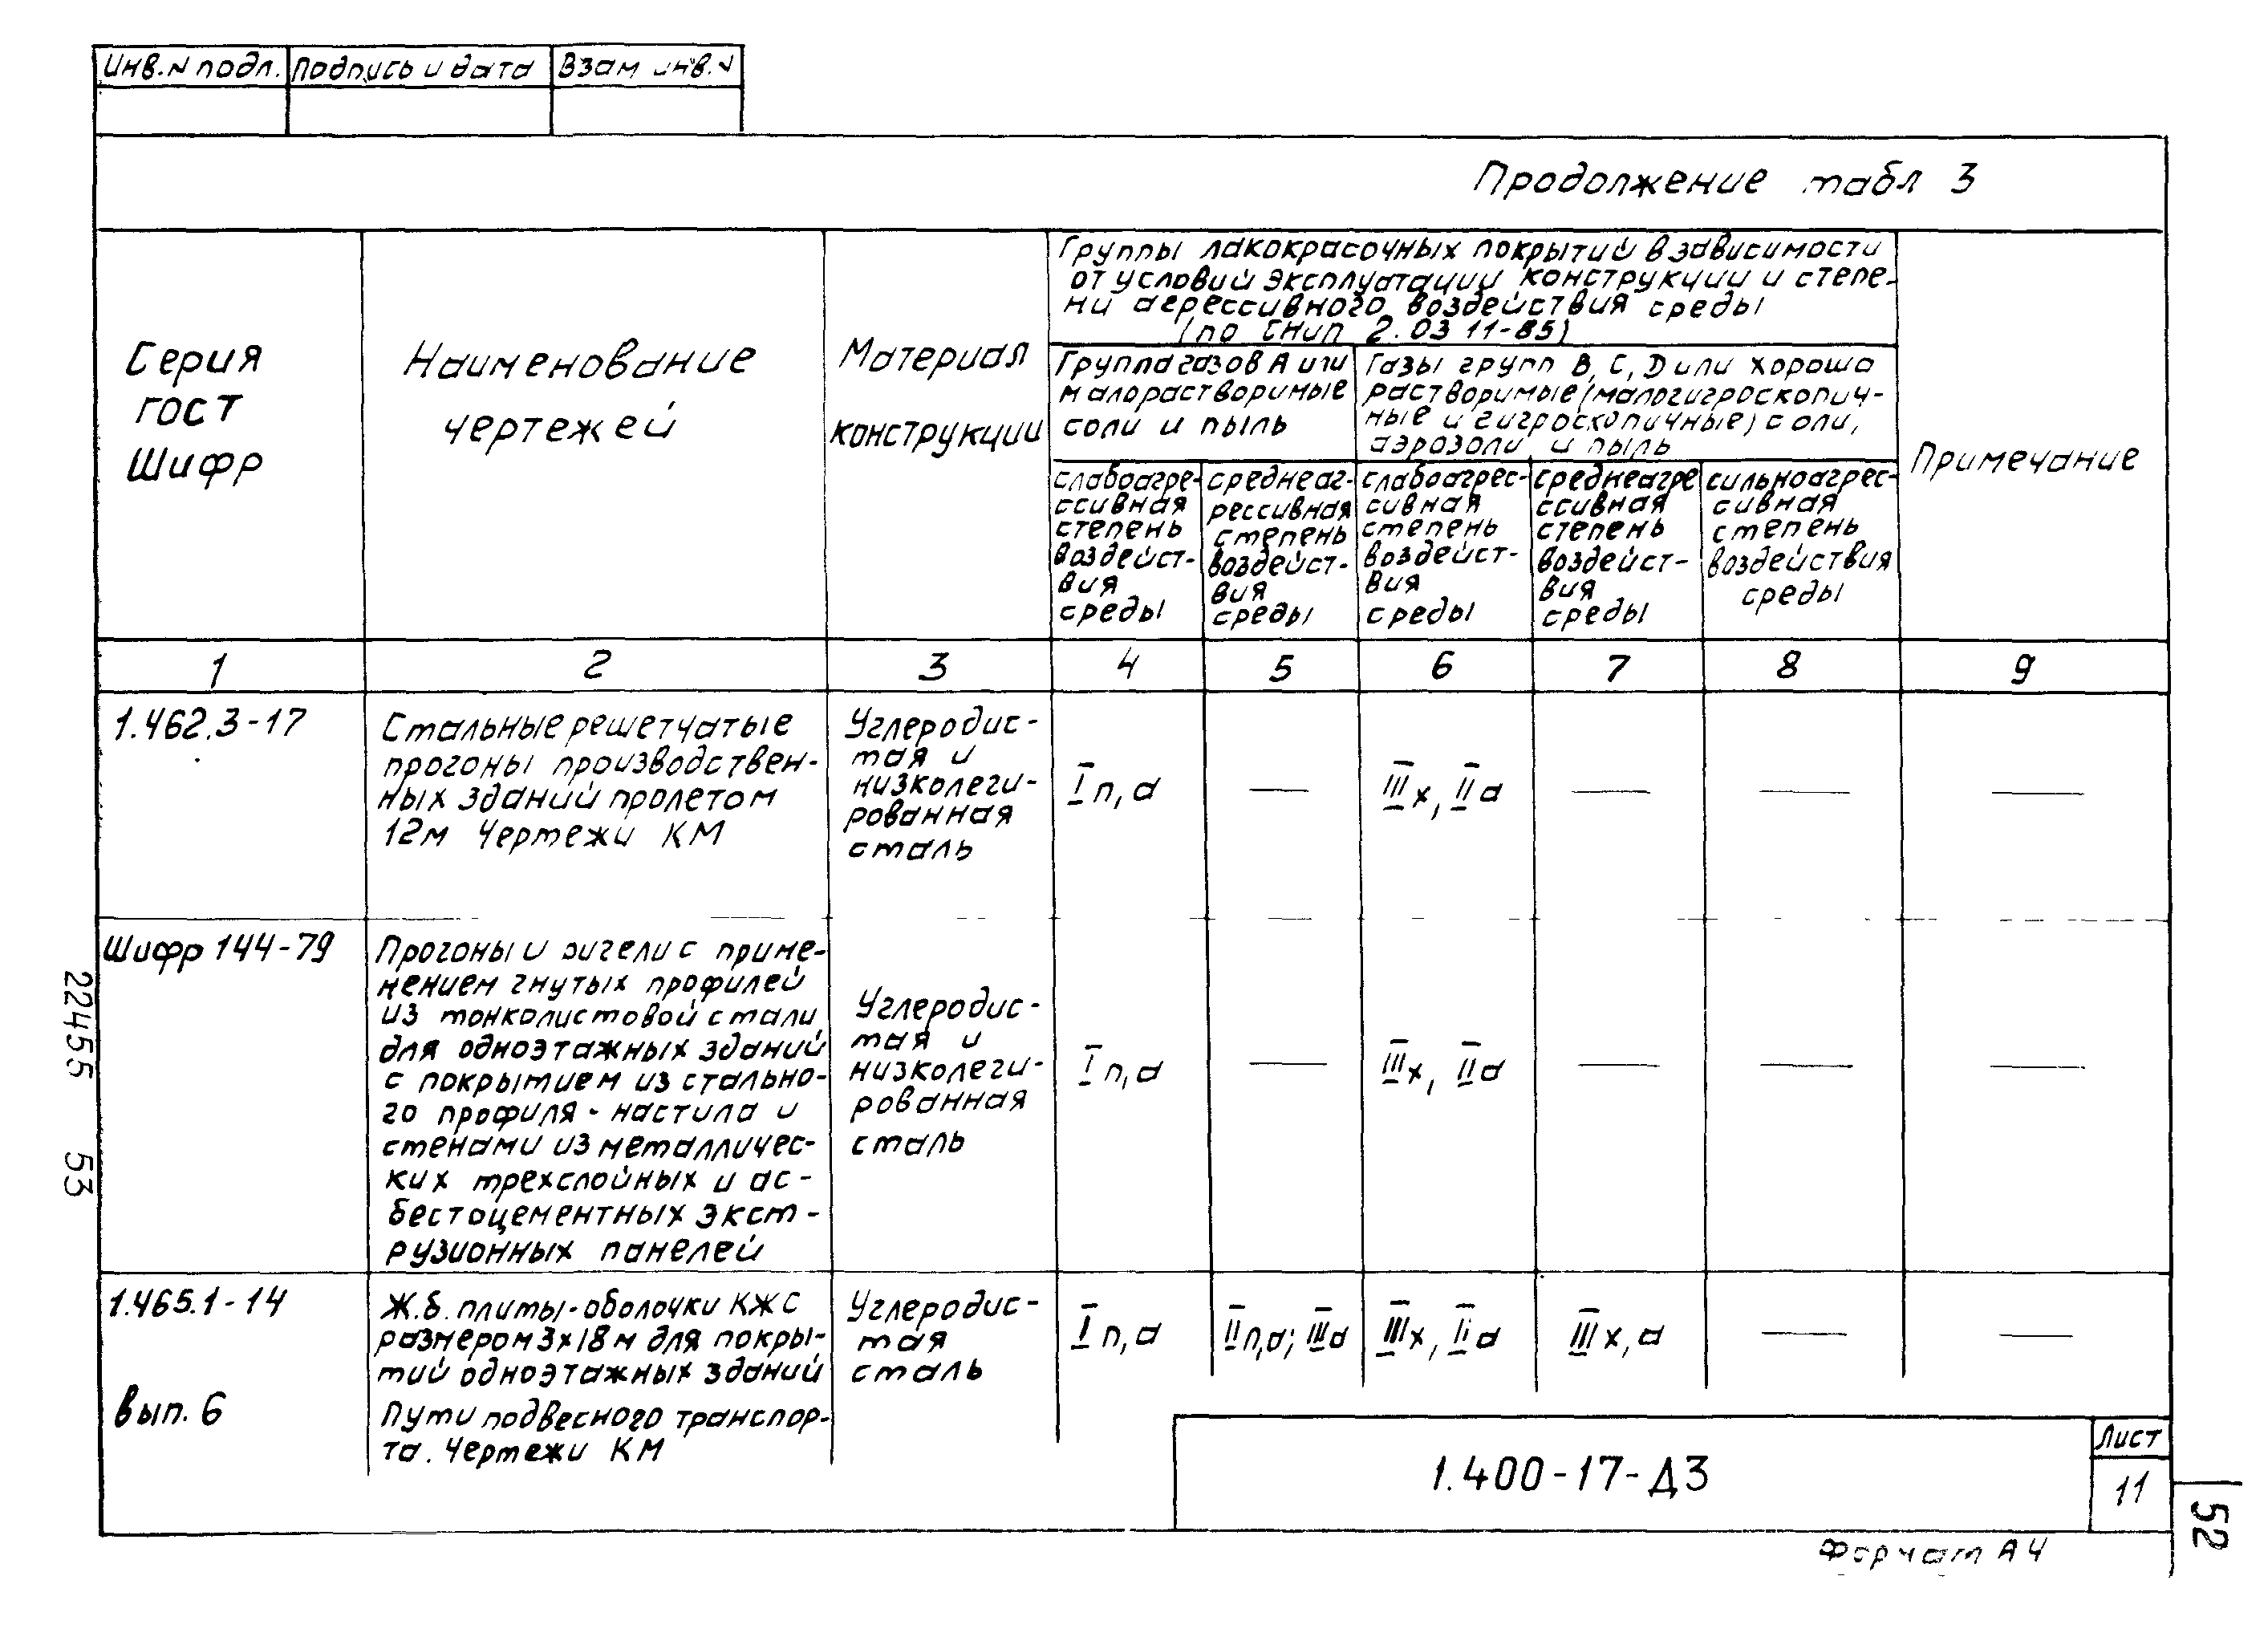 Инв.N подл. Подпись и дата Взам инв.N
Продолжение табл 3
Серия
ГОСТ
Шифр
Наименование
чертежей
Материал
конструкции
Группы лакокрасочных покрытий в зависимости
от условий эксплуатации конструкции и степе-
ни агрессивного воздействия среды
(по СНиП 2.03 11-85)
Группа газов А или
малорастворимые
соли и пыль
Газы групп В, С, D или хорошо
растворимые (малогигроскопич-
ные и гигроскопичные) соли,
аэрозоли и пыль
слабоагре-
ссивная
степень
воздейст-
вия
среды
среднеаг-
рессивная
степень
воздейст-
вия
среды
слабоагрес-
сивная
степень
воздейст-
вия
среды
среднеагре
ссивная
степень
воздейст-
вия
среды
сильноагрес-
сивная
степень
воздействия
среды
Примечание
1 2 3 4 5 6 7 8 9
1.462.3-17
Стальные решетчатые
прогоны производствен-
ных зданий пролетом
12м Чертежи КМ
Углеродис-
тая и
низколеги-
рованная
сталь
I п, а — III х, II а — — —
Шифр 144-79
Прогоны и ригели с приме-
нением гнутых профилей
из тонколистовой стали
для одноэтажных зданий
с покрытием из стально-
го профиля-настила и
стенами из металличес-
ких трехслойных и ас-
бестоцементных экст-
рузионных панелей
Углеродис-
тая и
низколеги-
рованная
сталь
I п, а — III х, II а — — —
1.465.1-14
вып. 6
Ж.б. плиты-оболочки КЖС
размером 3х18 м для покры-
тий одноэтажных зданий
Пути подвесного транспор-
та. Чертежи КМ
Углеродис-
тая
сталь
I п, а II п,а; III а III х, II а III х, а — —
1.400-17-Д3
Лист
11
Формат А4
22455 53
52